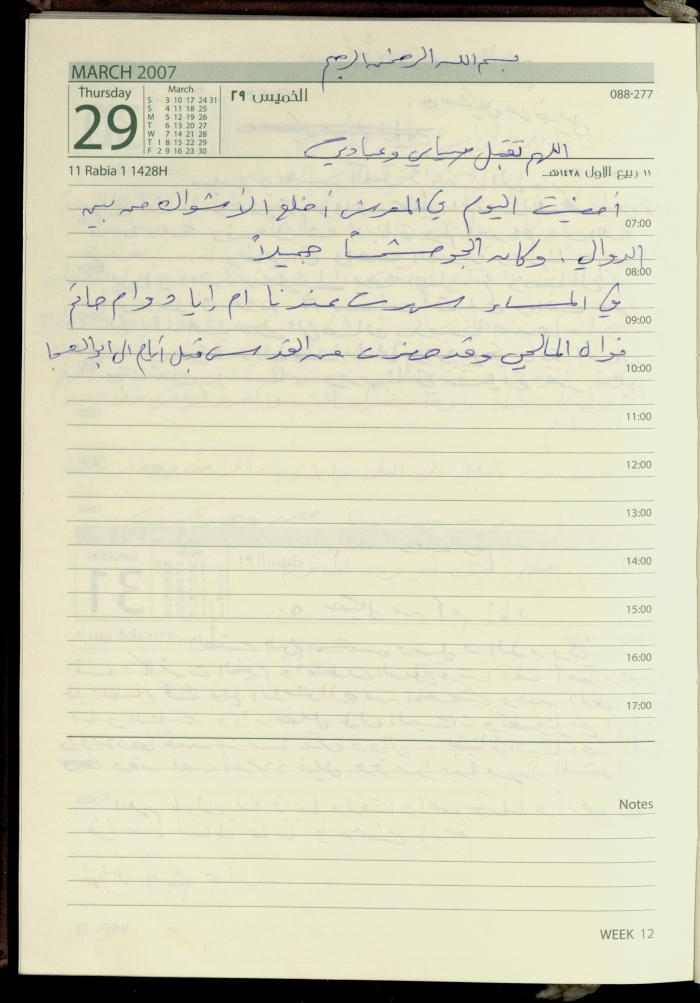 بسم الله الرحمن الرحيم
MARCH 2007
Thursday
29
March
S 3 10 17 24 31
S 4 11 18 25
M 5 12 19 26
T 6 13 20 27
W 7 14 21 28
T 1 8 15 22 29
F 2 9 16 23 30
الخميس ٢٩
088-277
اللهم تقبل صيامي وعبادتي
11 Rabia 1 1428H
١١ ربيع الاول ١٤٢٨هـ
أمضيت اليوم في المعرش أخلع الأشواك من بين
07:00
الدوالي، وكان الجو مشمساً جميلاً
08:00
في المساء سهرت عندنا ام رايا و وام حاتم
09:00
المالحي وقد حضرت من القدس قبل أيام الى
10:00
11:00
12:00
13:00
14:00
15:00
16:00
17:00
Notes
WEEK 12